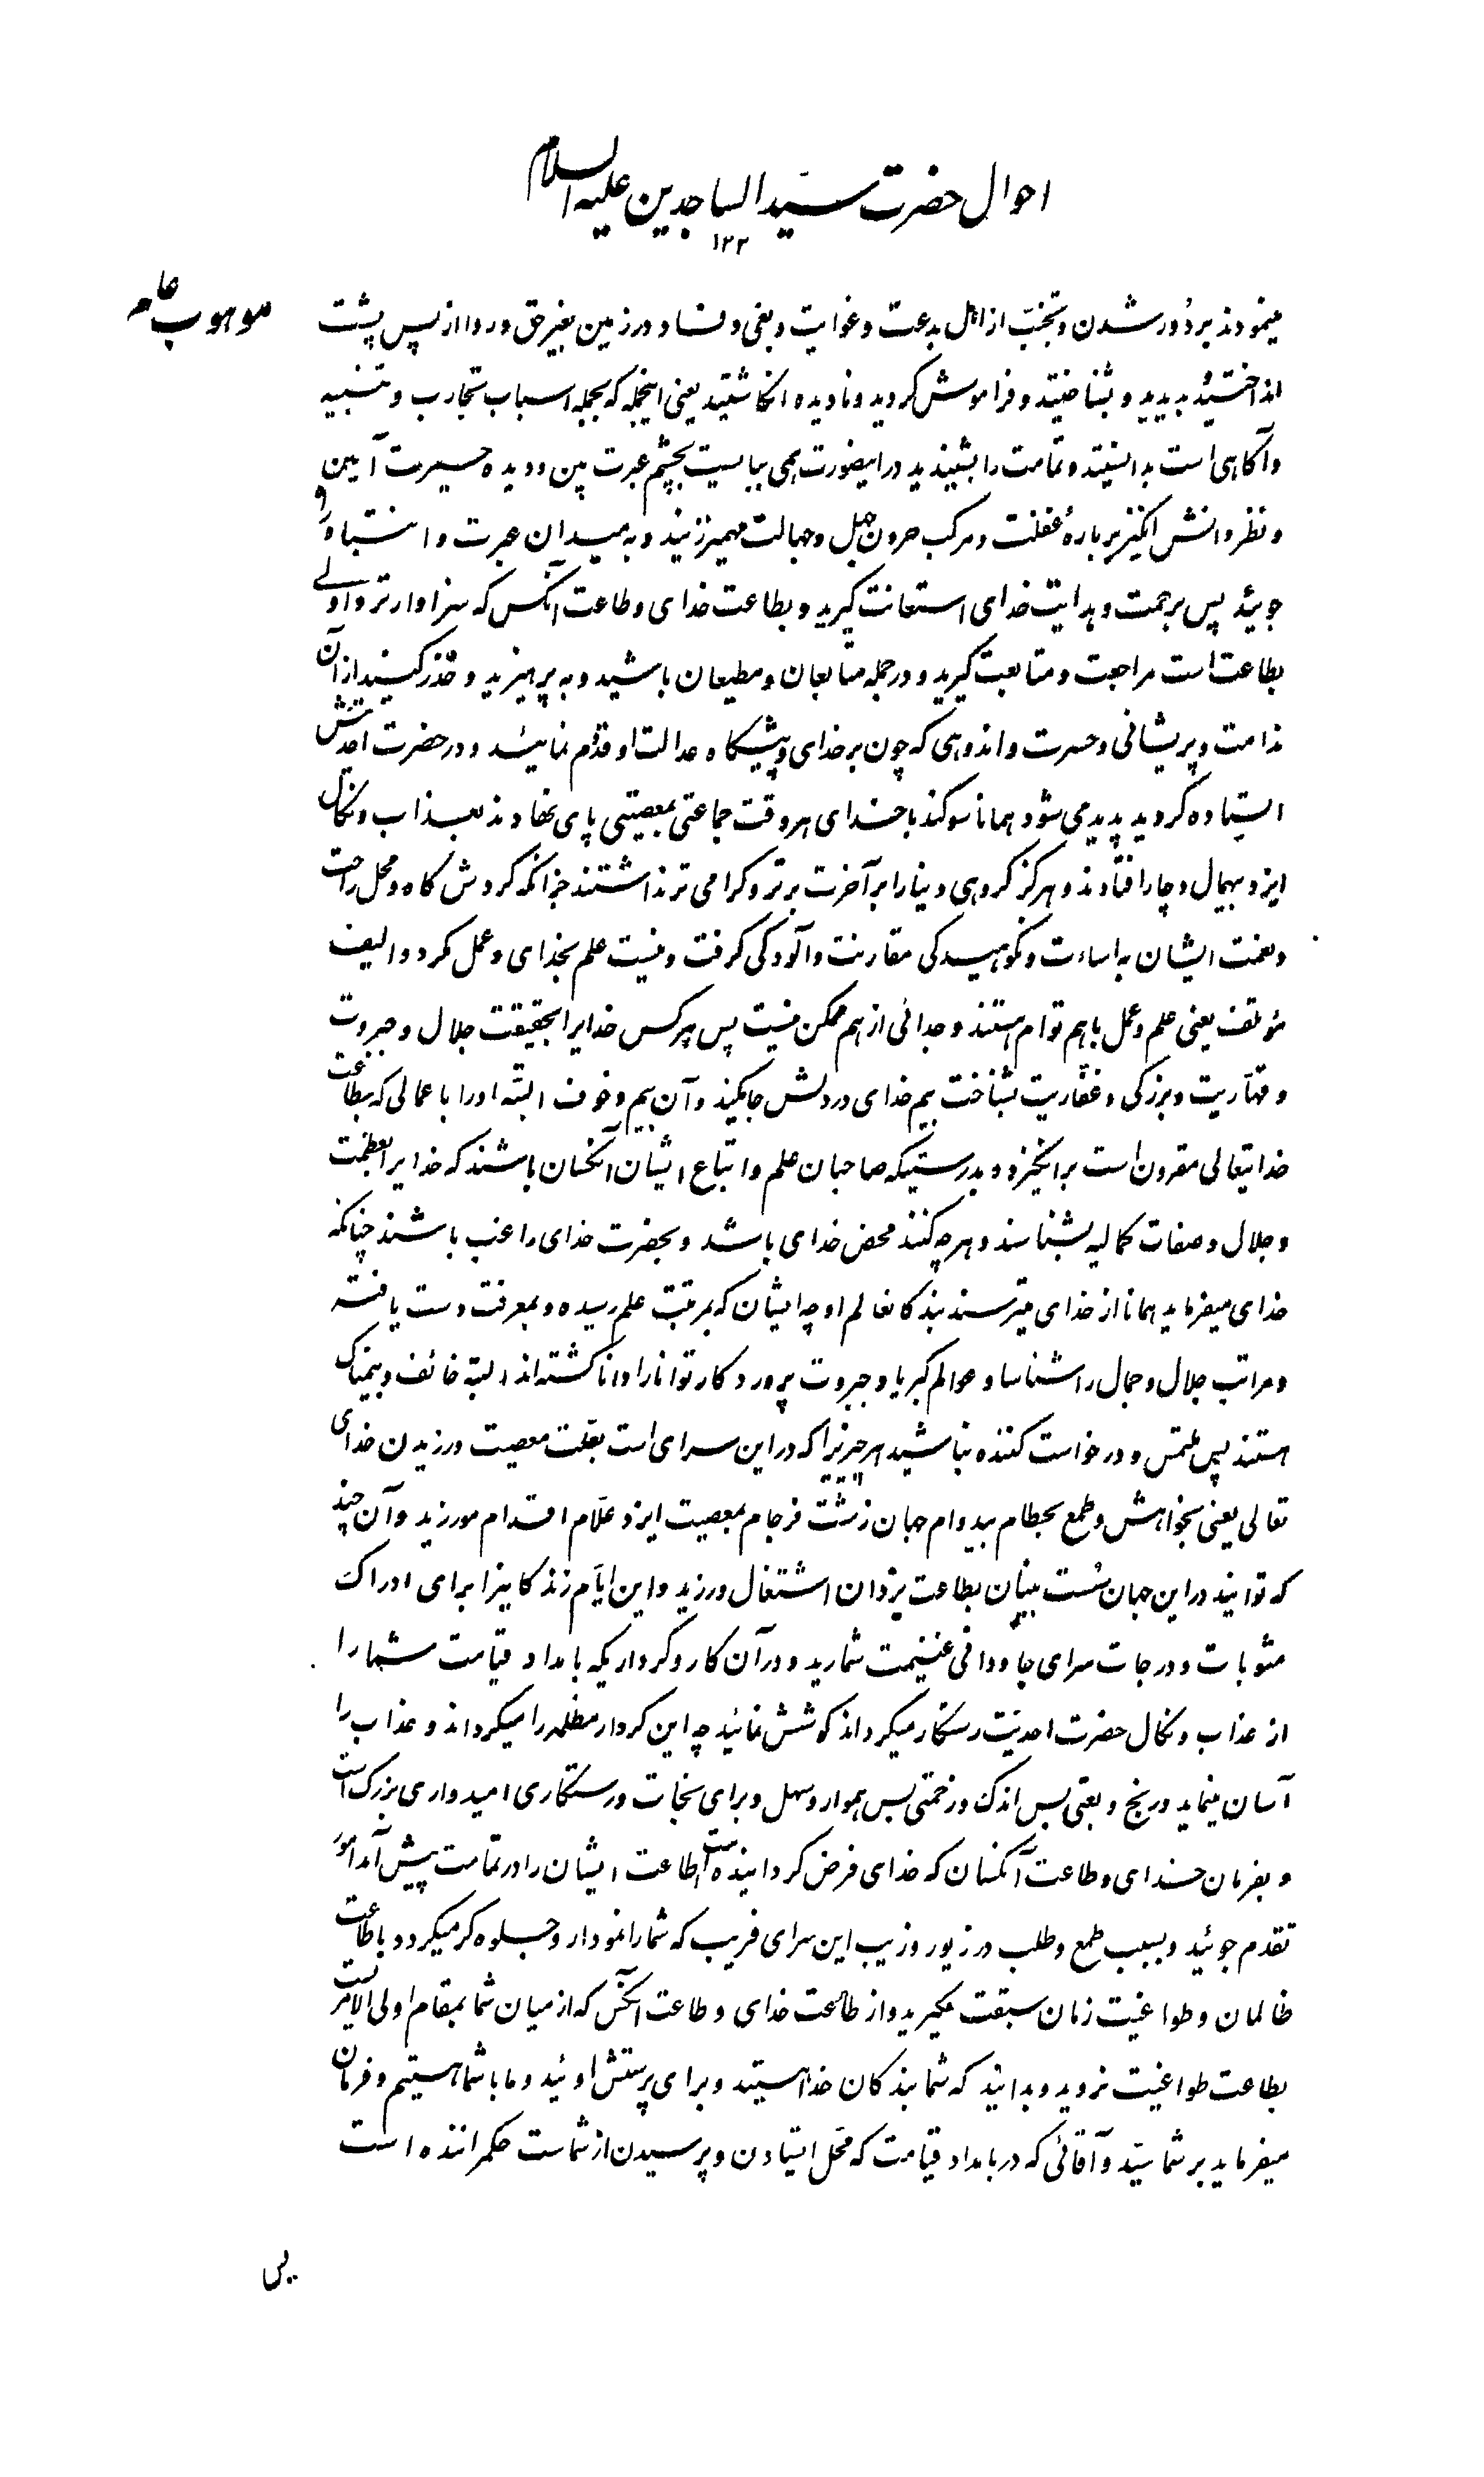 احوال حضرت سید الساجدین علیه السلام
۱۲۲
موهوب عام
مینمودند بر دور شدن و تجنب از اهل بدعت و غوایت و بغی و فساد در زمین بغیر حق و ردا از پس پشت
انداختید بدیدید و بشناختید و فراموش کردید و نادیده انگاشتید یعنی اینجمله که بجمله اسباب تجارب و تنبیه
و آگاهی است بدانستید و تمامت را بشنیدید در اینصورت همی ببایست بچشم عبرت بین و دیده حسرت آیین
و نظر دانش انگیز بر باره غفلت و مرکب حرون جهل و جهالت مهمیز زنید و به میدان عبرت و انتباه راه
جوئید پس برحمت و هدایت خدای استعانت گیرید و بطاعت خدای و طاعت آنکس که سزاوارتر و اولی
بطاعت است مراجعت و متابعت گیرید و در جمله متابعان و مطیعان باشید و به پرهیزید و حذر کنید از آن
ندامت و پریشانی و حسرت و اندوهی که چون بر خدای و پیشگاه عدالت او قدوم نمائید و در حضرت احدیتش
ایستاده گردید پدید می شود همانا سوگند با خدای هر وقت جماعتی بمعصیتی پای نهادند بعذاب و نکال
ایزد بیهمال دچار افتادند و هرگز گروهی دنیا را بر آخرت برتر و گرامی تر نداشتند جز آنکه گردش گاه و محل راحت
و نعمت ایشان به اساءت و نکوهیدگی مقارنت و آلودگی گرفت و نیست علم بخدای و عمل مگر دو الیف
مؤتلف یعنی علم و عمل با هم توام هستند و جدائی از هم ممکن نیست پس هر کس خدایرا بحقیقت جلال و جبروت
و قهاریت و بزرگی و غفاریت بشناخت بیم خدای در دلش جایگیند و آن بیم و خوف البته او را با عمالی که بطاعت
خدایتعالی مقرون است برانگیزد و بدرستیکه صاحبان علم و اتباع ایشان آنکسان باشند که خدایرا بعظمت
و جلال و صفات کمالیه بشناسند و هر چه کنند محض خدای باشد و بحضرت خدای راغب باشند چنانکه
خدای میفرماید همانا از خدای میترسند بندگان عالم او چه ایشان که بمرتبت علم رسیده و بمعرفت دست یافته
و مراتب جلال و جمال را شناسا و عوالم کبریا و جبروت پروردگار توانا را دانا گشته اند البته خائف و بیمناک
هستند پس ملتمس و درخواست کننده نباشید هر چیزیرا که در این سرای است بعلت معصیت ورزیدن خدای
تعالی یعنی بخواهش و طمع بحطام بیدوام جهان زشت فرجام بمعصیت ایزد علام اقدام مورزید و آن چند
که توانید در این جهان سست بنیان بطاعت یزدان اشتغال ورزید و این ایام زندگانیرا برای ادراک
مثوبات و درجات سرای جاودانی غنیمت شمارید و در آن کار و کرداریکه بامداد قیامت شما را
از عذاب و نکال حضرت احدیت رستگار میگرداند کوشش نمائید چه این کردار مظلمه را میگرداند و عذاب را
آسان مینماید و رنج و تعبی بس اندک و زحمتی بس هموار و سهل و برای نجات و رستگاری امیدواری بزرگ است
و بفرمان خدای و طاعت آنکسان که خدای فرض گردانیده است اطاعت ایشان را در تمامت پیش آمد امور
تقدم جوئید و بسبب طمع و طلب در زیور و زیب این سرای فریب که شما را نمودار و جلوه گر میگردد باطاعت
ظالمان و طواغیت زمان سبقت مگیرید و از طاعت خدای و طاعت آنکس که از میان شما بمقام اولی الامر است
بطاعت طواغیت نروید و بدانید که شما بندگان خدا هستید و برای پرستش اوئید و ما با شما هستیم و فرمان
میفرماید بر شما سید و آقائی که در بامداد قیامت که محل ایستادن و پرسیدن از شماست حکمراننده است
پس